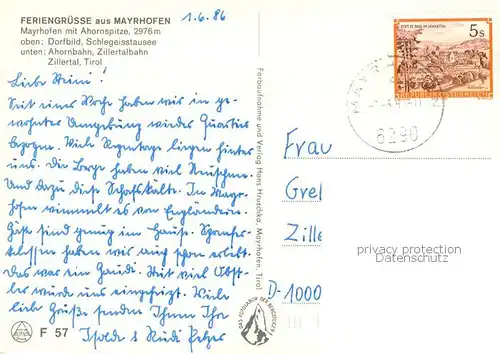 FERIENGRÜSSE aus MAYRHOFEN
Mayrhofen mit Ahornspitze, 2976 m
oben: Dorfbild, Schlegeisstausee
unten: Ahornbahn, Zillertalbahn
Zillertal, Tirol
1.6.86
Liebe Heini!
Seit einer Woche haben wir in ge-
wohnter Umgebung wieder Quartier
bezogen. Viele Regentage liegen hinter
uns. Die Berge haben viel Neuschnee.
Und dazu diese Schafskälte. In Mayr-
hofen wimmelt es von Engländern.
Gäste sind genug im Haus.
klossen haben wir auch schon erlebt.
Das war ein Gaudi. Mit viel Obst-
ler wurden uns eingeheizt. Viele
liebe Grüße senden Ihnen Ihre
Isolde & Rudi
F 57
Farbaufnahme und Verlag Hans Hruschka, Mayrhofen, Tirol
DAS HOCHGEBIRG
5s
REPUBLIK ÖSTERREICH
STIFT ST. PAUL IM LAVANTTAL
MAYRH
6290
Frau
Gre
Zille
D-1000
privacy protection
Datenschutz